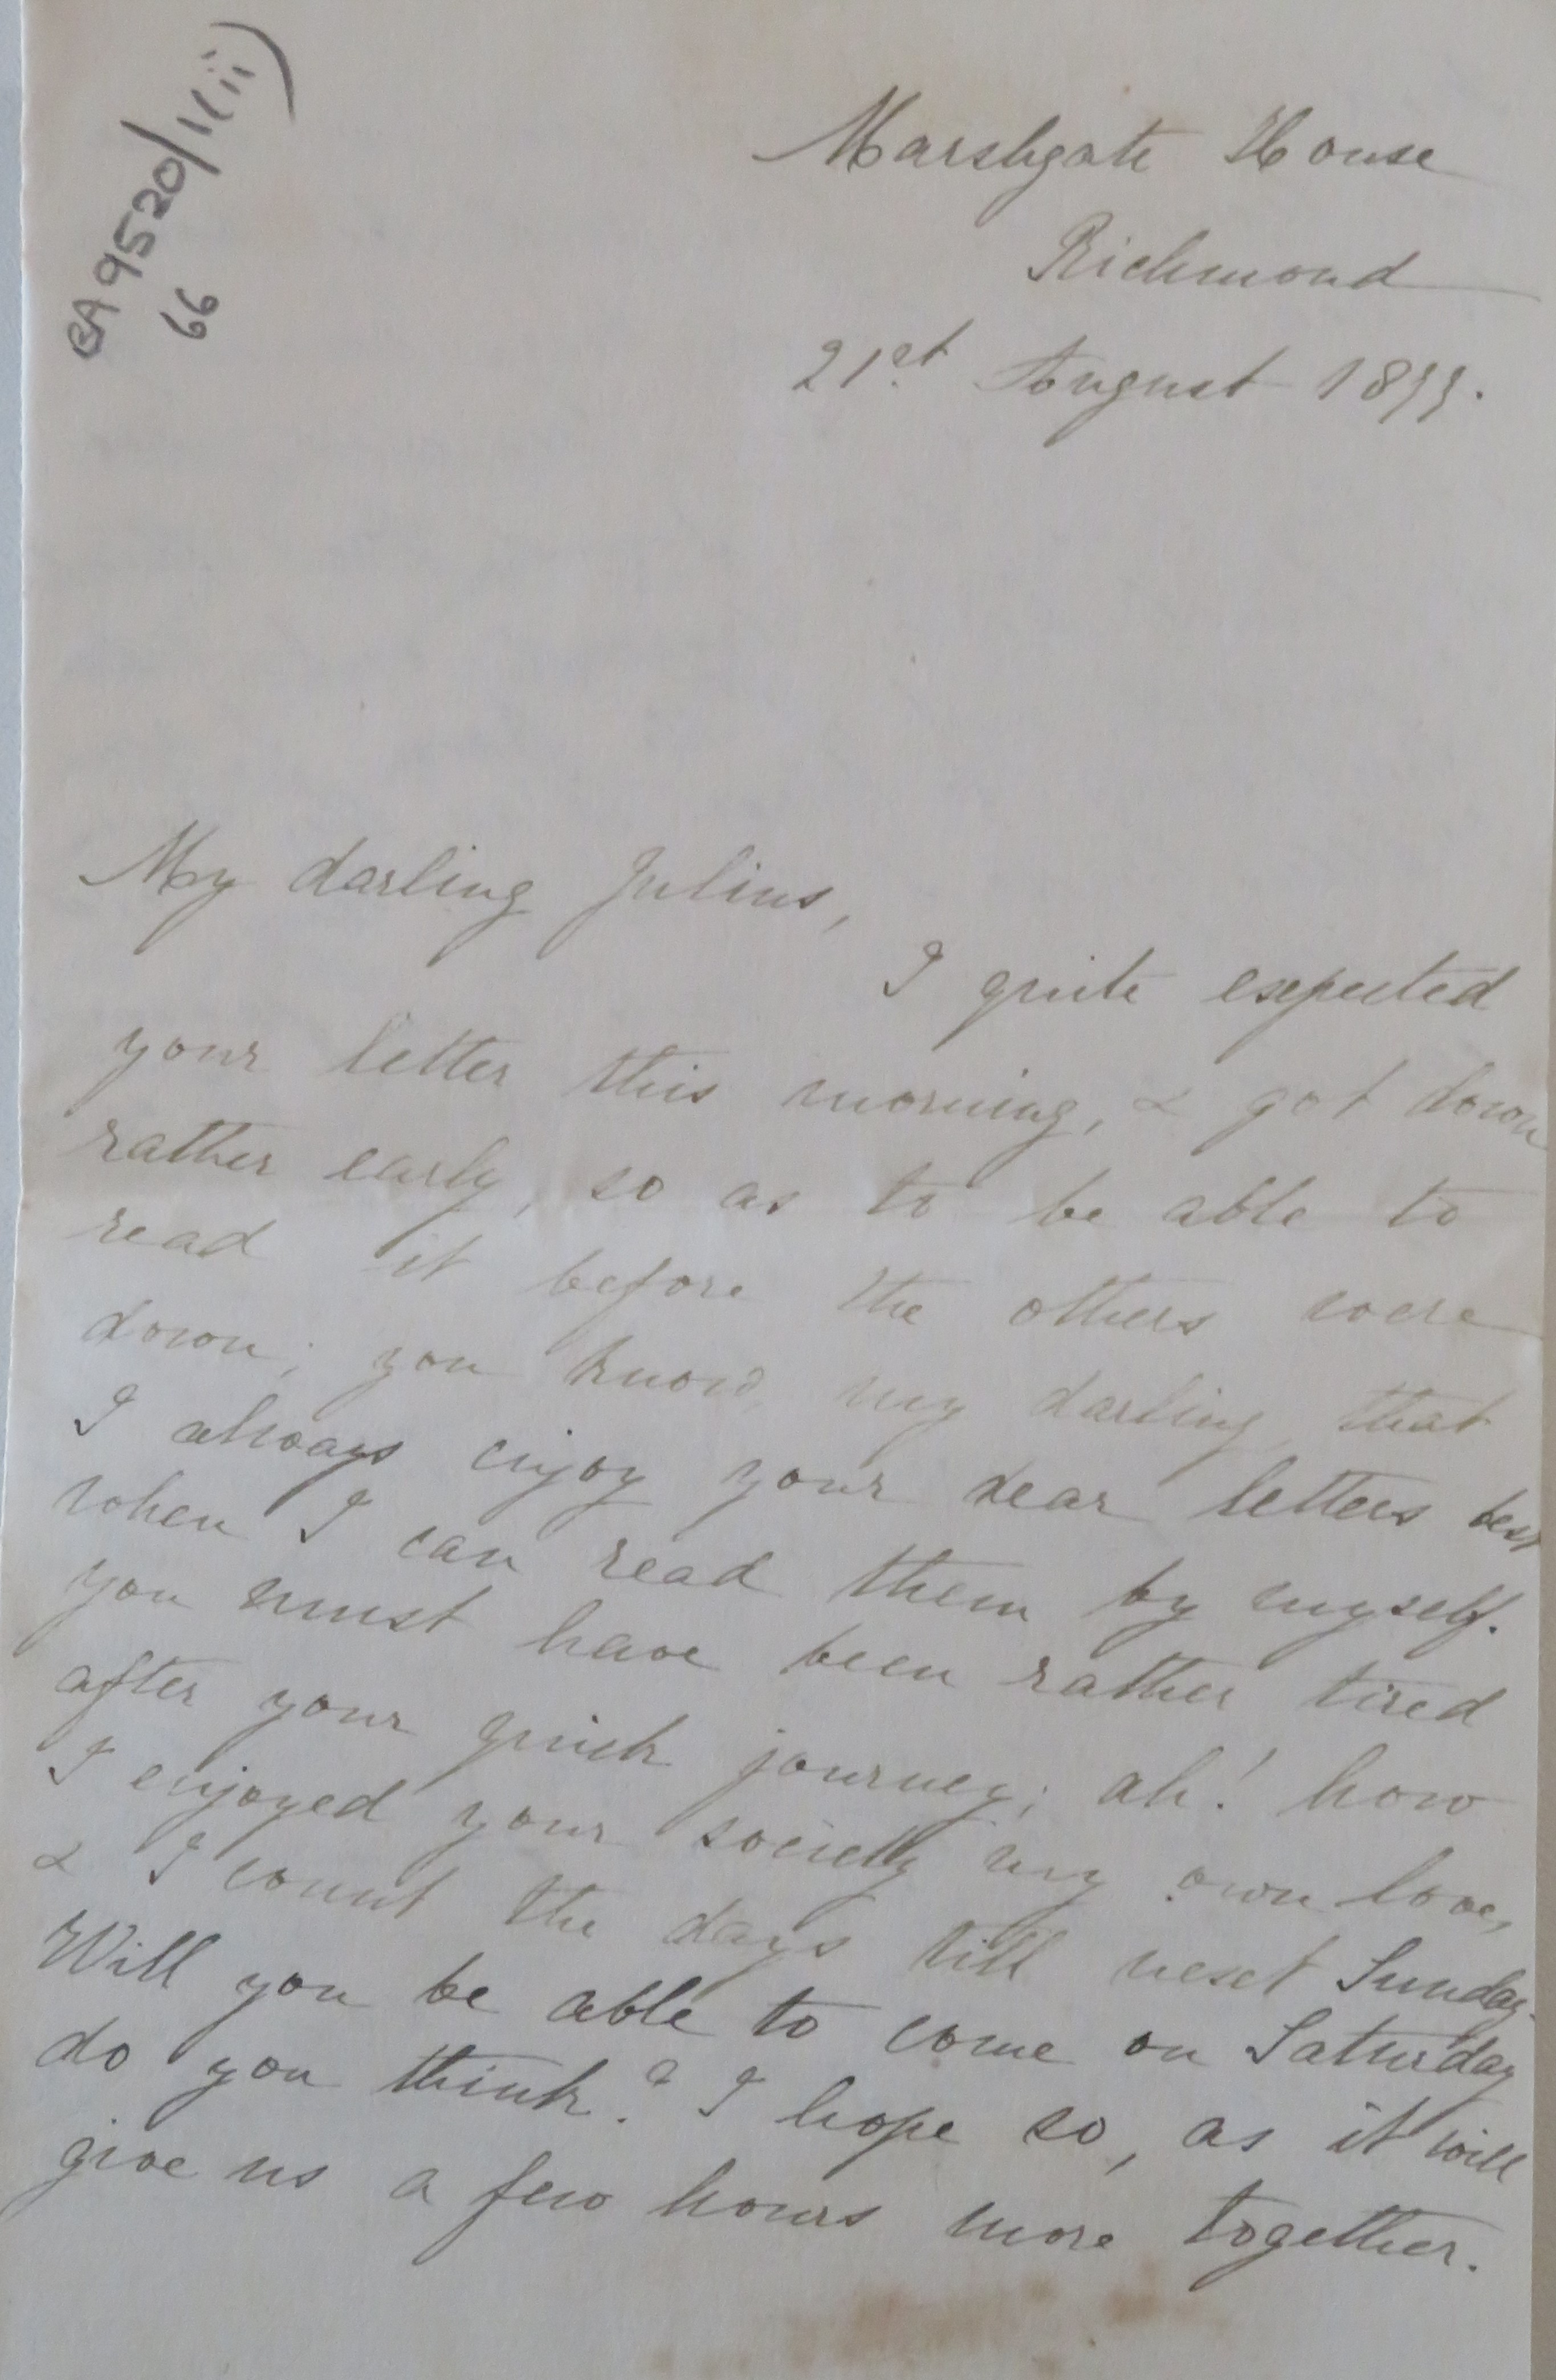 BA 9520/1(iii)
66
Marshgate House
Richmond
21st August 1877.
My darling Julius,
I quite expected
your letter this morning, & got down
rather early, so as to be able to
read it before the others were
down; you know, my darling, that
I always enjoy your dear letters best
when I can read them by myself.
you must have been rather tired
after your quick journey; ah! how
I enjoyed your society my own love,
& I count the days till next Sunday.
Will you be able to come on Saturday
do you think? I hope so, as it will
give us a few hours more together.